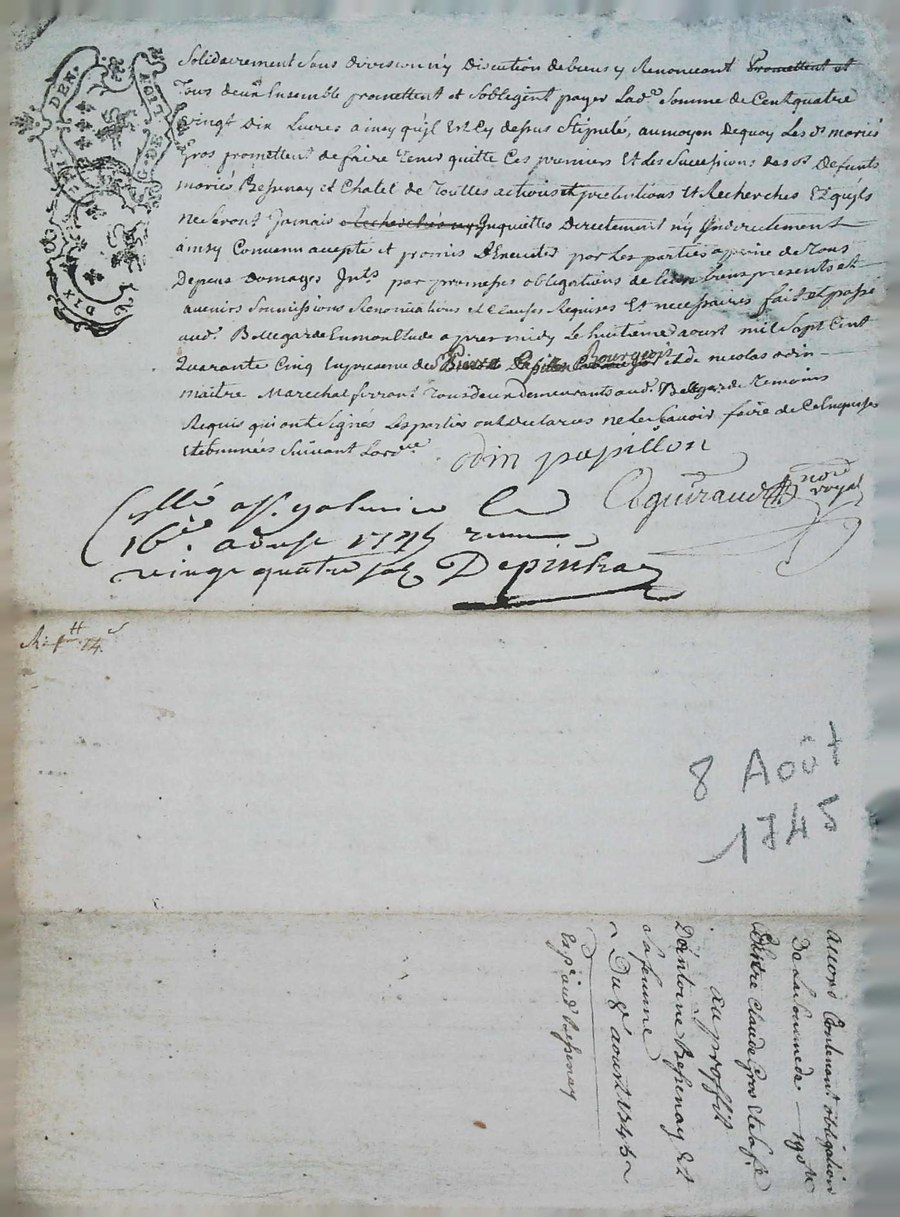 Solidairement Sans division n'y Discution de biens y Renonceant Promettent et
Tous deux Ensemble promettent et Soblegent payer Lad.e Somme de Cent quatre
vingt Dix Livres ainsy qu'jl Est Cy dessus Stipulé, au moyen De quoy Les d.s mariés
gros promettent de faire Tenir quitte Ces premiers Et les Successions des d.s Defunts
mariés Bessenay et Chatel de Touttes actions et pretentions Et Recherches Et quyls
ne Seront Jamais Recherchés ny Jnquiettes Directement n'y Jndirectement
ainsy Convenu accepté et promis D'Executer par Les parties a peine de Tous
Depens Domages Jnts. par promesses obligations de biens presents et
avenirs Soumissions Renonciations et Clauses Requises Et necessaires fait et passé
aud. Bellegarde En mon Etude apres midy Le huitieme aoust mil Sept Cent
Quarante Cinq En presence de Pierre Papillon Bourgeois et de nicolas odin
maitre Marechal ferrant Tous deux demeurants aud. Bellegarde Temoins
Requis qui ont Signés Les parties ont declarees ne Le Scavoir faire de Ce Enquises
Et
odin papillon
not.re
royal
Collé
16e. aoust 1745
vingt quatre sols
8 Août
1745
Contenant obligation
De La Somme de 190 #
Claude Gros Et Sa fe
au proffit
D'antoine Bessenay Et
Sa femme
Du 8 aoust 1745
Bessenay
DIX DEN.
DIX